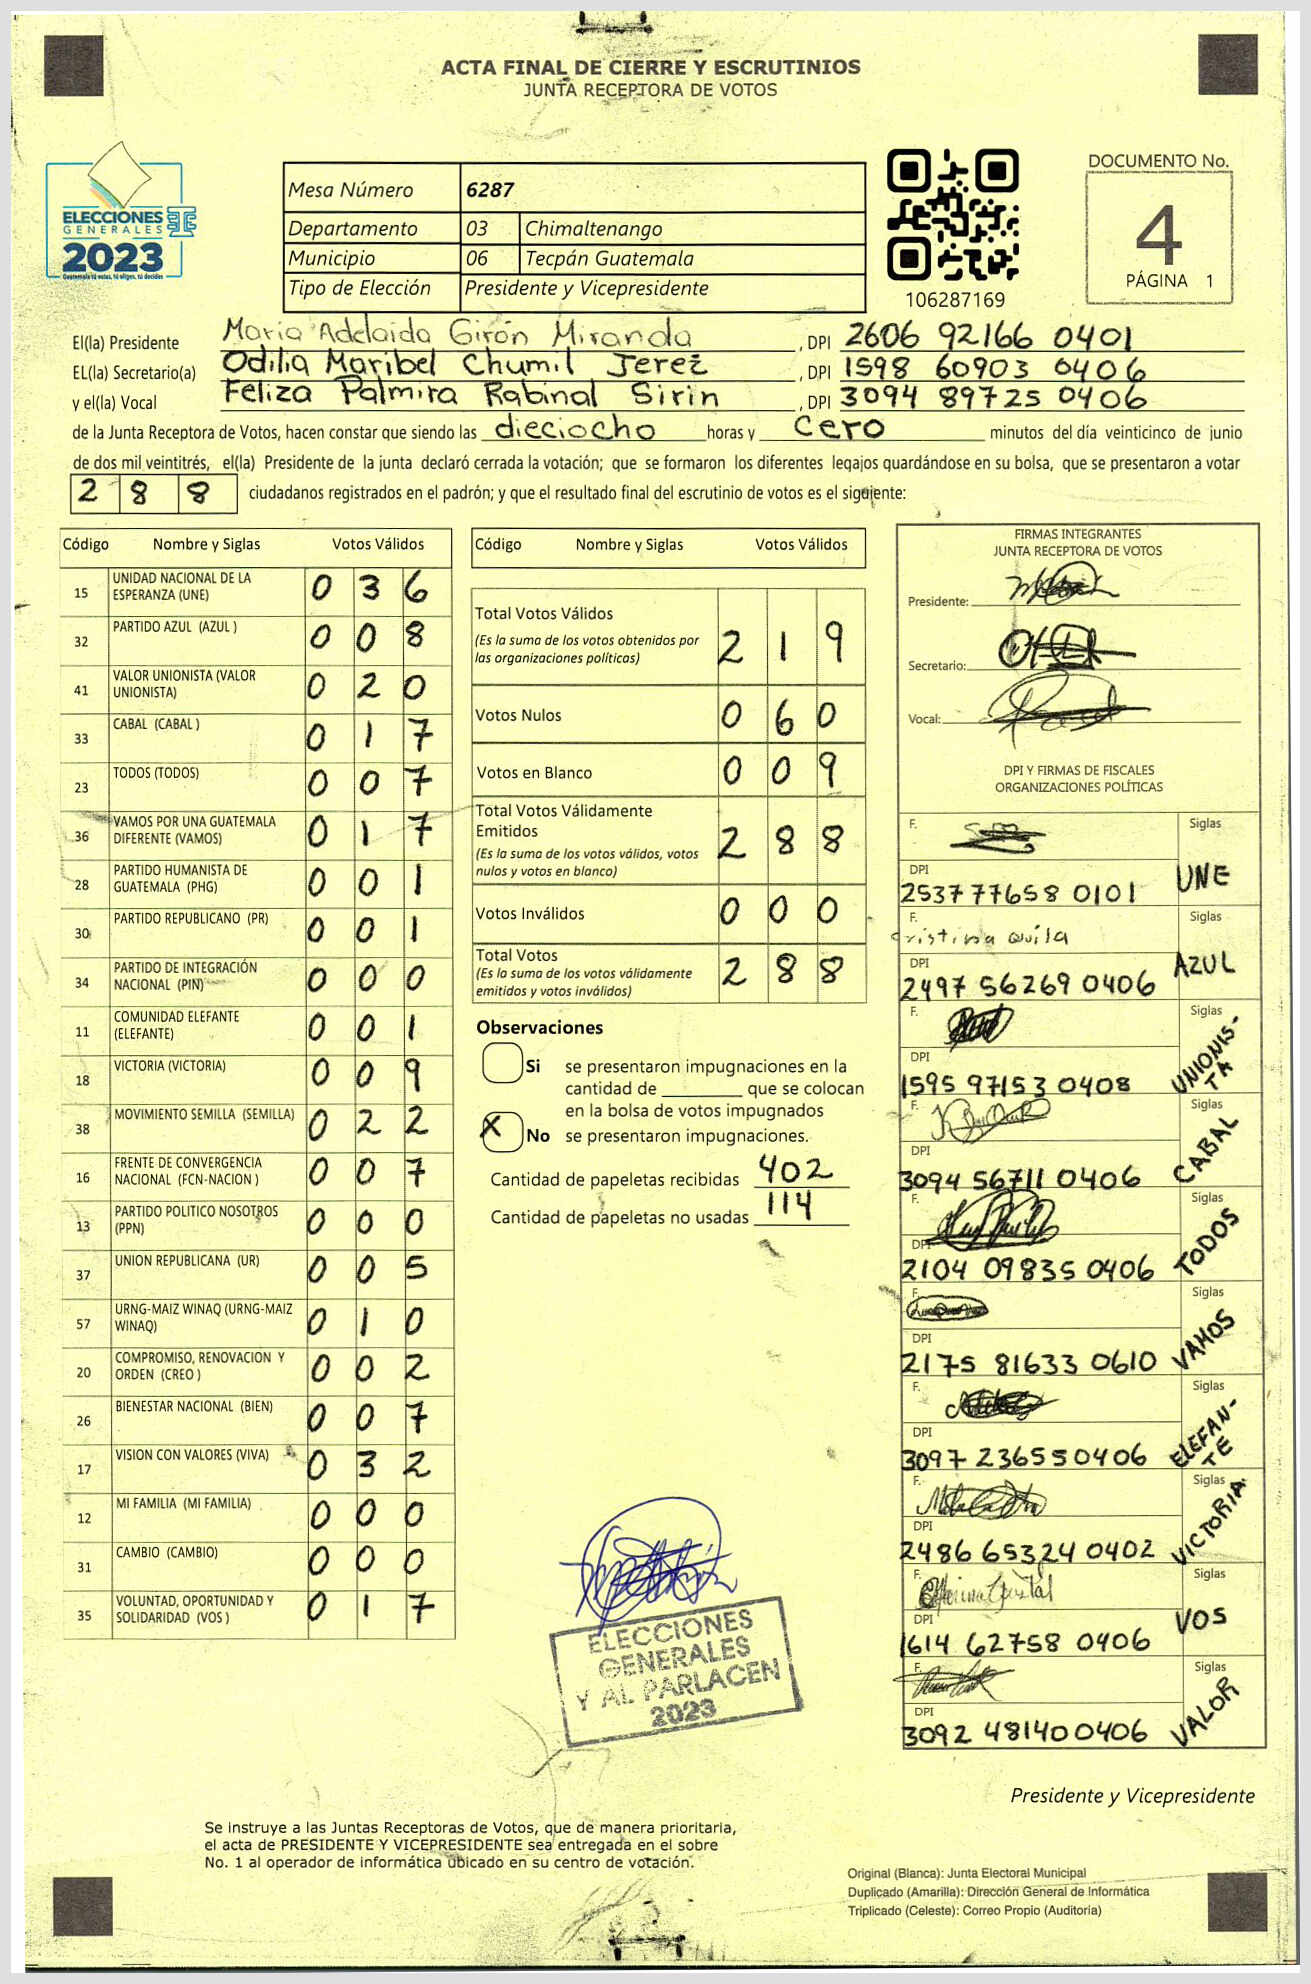 ACTA FINAL DE CIERRE Y ESCRUTINIOS
JUNTA RECEPTORA DE VOTOS
ELECCIONES
GENERALES
2023
Guatemala tú votas, tú eliges, tú decides
Mesa Número 6287
Departamento 03 Chimaltenango
Municipio 06 Tecpán Guatemala
Tipo de Elección Presidente y Vicepresidente
106287169
DOCUMENTO No.
4
PÁGINA 1
El(la) Presidente Maria Adelaida Girón Miranda , DPI 2606 92166 0401
EL(la) Secretario(a) Odilia Maribel Chumil Jerez , DPI 1598 60903 0406
y el(la) Vocal Feliza Palmira Rabinal Sirin , DPI 3094 89725 0406
de la Junta Receptora de Votos, hacen constar que siendo las dieciocho horas y cero minutos del día veinticinco de junio
de dos mil veintitrés, el(la) Presidente de la junta declaró cerrada la votación; que se formaron los diferentes legajos guardándose en su bolsa, que se presentaron a votar
2 8 8 ciudadanos registrados en el padrón; y que el resultado final del escrutinio de votos es el siguiente:
Código Nombre y Siglas Votos Válidos
15 UNIDAD NACIONAL DE LA ESPERANZA (UNE) 0 3 6
32 PARTIDO AZUL (AZUL ) 0 0 8
41 VALOR UNIONISTA (VALOR UNIONISTA) 0 2 0
33 CABAL (CABAL ) 0 1 7
23 TODOS (TODOS) 0 0 7
36 VAMOS POR UNA GUATEMALA DIFERENTE (VAMOS) 0 1 7
28 PARTIDO HUMANISTA DE GUATEMALA (PHG) 0 0 1
30 PARTIDO REPUBLICANO (PR) 0 0 1
34 PARTIDO DE INTEGRACIÓN NACIONAL (PIN) 0 0 0
11 COMUNIDAD ELEFANTE (ELEFANTE) 0 0 1
18 VICTORIA (VICTORIA) 0 0 9
38 MOVIMIENTO SEMILLA (SEMILLA) 0 2 2
16 FRENTE DE CONVERGENCIA NACIONAL (FCN-NACION ) 0 0 7
13 PARTIDO POLITICO NOSOTROS (PPN) 0 0 0
37 UNION REPUBLICANA (UR) 0 0 5
57 URNG-MAIZ WINAQ (URNG-MAIZ WINAQ) 0 1 0
20 COMPROMISO, RENOVACION Y ORDEN (CREO ) 0 0 2
26 BIENESTAR NACIONAL (BIEN) 0 0 7
17 VISION CON VALORES (VIVA) 0 3 2
12 MI FAMILIA (MI FAMILIA) 0 0 0
31 CAMBIO (CAMBIO) 0 0 0
35 VOLUNTAD, OPORTUNIDAD Y SOLIDARIDAD (VOS ) 0 1 7
Código Nombre y Siglas Votos Válidos
Total Votos Válidos
(Es la suma de los votos obtenidos por
las organizaciones políticas) 2 1 9
Votos Nulos 0 6 0
Votos en Blanco 0 0 9
Total Votos Válidamente
Emitidos
(Es la suma de los votos válidos, votos
nulos y votos en blanco) 2 8 8
Votos Inválidos 0 0 0
Total Votos
(Es la suma de los votos válidamente
emitidos y votos inválidos) 2 8 8
Observaciones
Si se presentaron impugnaciones en la
cantidad de ________ que se colocan
en la bolsa de votos impugnados
X No se presentaron impugnaciones.
Cantidad de papeletas recibidas 402
Cantidad de papeletas no usadas 114
ELECCIONES
GENERALES
Y AL PARLACEN
2023
FIRMAS INTEGRANTES
JUNTA RECEPTORA DE VOTOS
Presidente:
Secretario:
Vocal:
DPI Y FIRMAS DE FISCALES
ORGANIZACIONES POLÍTICAS
F. Siglas
DPI UNE
2537 77658 0101
F. Cristina Quila Siglas
DPI AZUL
2497 56269 0406
F. Siglas
DPI UNIONIS-TA
1595 97153 0408
F. Siglas
DPI CABAL
3094 56711 0406
F. Siglas
DPI TODOS
2104 09835 0406
F. Siglas
DPI VAMOS
2175 81633 0610
F. Siglas
DPI ELEFAN-TE
3097 23655 0406
F. Siglas
DPI VICTORIA
2486 65324 0402
F. Siglas
DPI VOS
1614 62758 0406
F. Siglas
DPI VALOR
3092 48140 0406
Presidente y Vicepresidente
Se instruye a las Juntas Receptoras de Votos, que de manera prioritaria,
el acta de PRESIDENTE Y VICEPRESIDENTE sea entregada en el sobre
No. 1 al operador de informática ubicado en su centro de votación.
Original (Blanca): Junta Electoral Municipal
Duplicado (Amarilla): Dirección General de Informática
Triplicado (Celeste): Correo Propio (Auditoria)